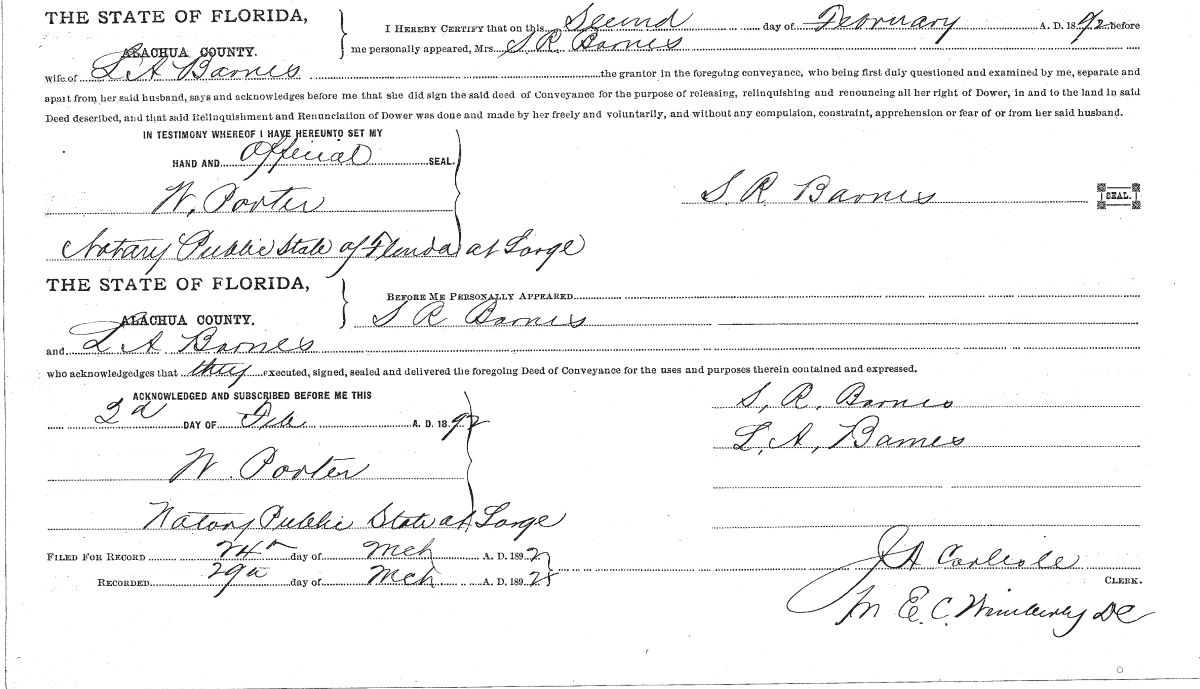 THE STATE OF FLORIDA,
ALACHUA COUNTY.
I HEREBY CERTIFY that on this Second day of February A. D. 1892 before
me personally appeared, Mrs. S. R. Barnes
wife of L A Barnes the grantor in the foregoing conveyance, who being first duly questioned and examined by me, separate and
apart from her said husband, says and acknowledges before me that she did sign the said deed of Conveyance for the purpose of releasing, relinquishing and renouncing all her right of Dower, in and to the land in said
Deed described, and that said Relinquishment and Renunciation of Dower was done and made by her freely and voluntarily, and without any compulsion, constraint, apprehension or fear of or from her said husband.
IN TESTIMONY WHEREOF I HAVE HEREUNTO SET MY
HAND AND Official SEAL.
W. Porter
S. R. Barnes
SEAL.
Notary Public State of Florida at Large
THE STATE OF FLORIDA,
ALACHUA COUNTY.
BEFORE ME PERSONALLY APPEARED
S R Barnes
and L A Barnes
who acknowledgedges that they executed, signed, sealed and delivered the foregoing Deed of Conveyance for the uses and purposes therein contained and expressed.
ACKNOWLEDGED AND SUBSCRIBED BEFORE ME THIS
2d DAY OF Feb A. D. 1892
S. R. Barnes
L. A. Barnes
W. Porter
Notary Public State at Large
FILED FOR RECORD 24th day of Mch A. D. 1892
RECORDED 29th day of Mch A. D. 189
J A Carlisle
CLERK.
E. C. Wimberly DC